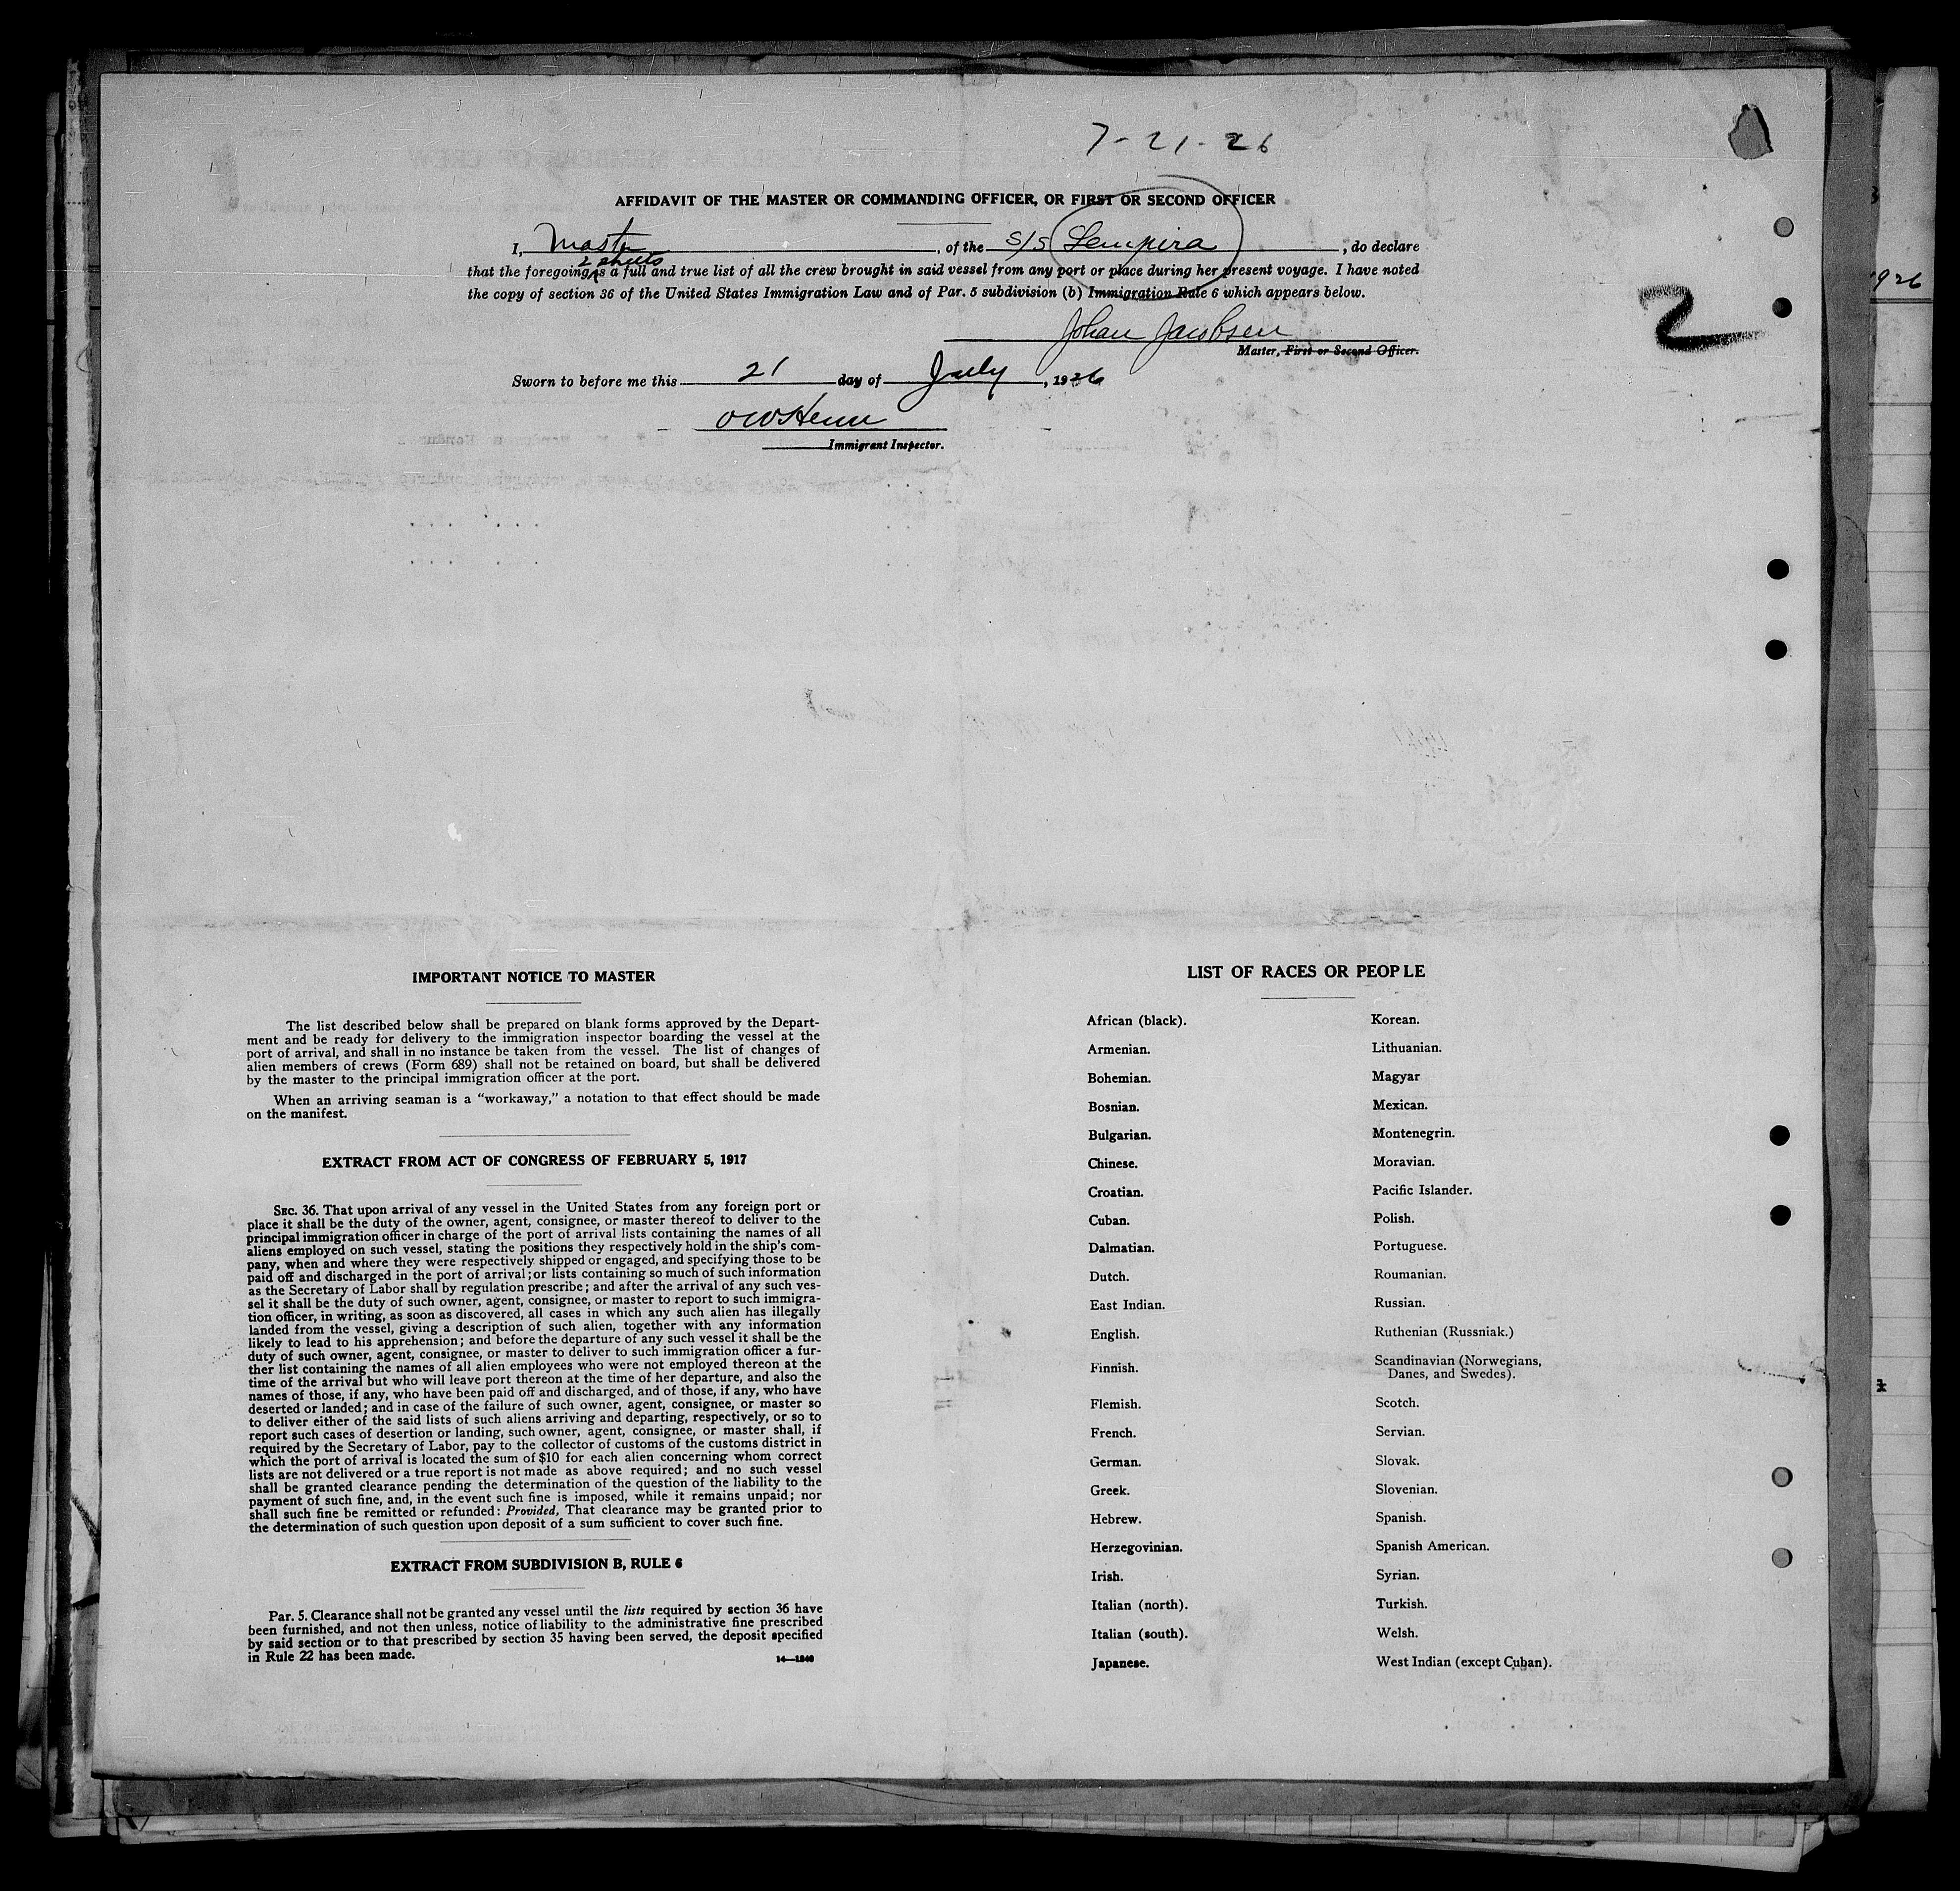 7-21-26
AFFIDAVIT OF THE MASTER OR COMMANDING OFFICER, OR FIRST OR SECOND OFFICER
I, Master, of the S/S Lempira, do declare
2 sheets
that the foregoing is a full and true list of all the crew brought in said vessel from any port or place during her present voyage. I have noted
the copy of section 36 of the United States Immigration Law and of Par. 5 subdivision (b) Immigration Rule 6 which appears below.
2
926
Johan Jacobsen
Master, First or Second Officer.
Sworn to before me this 21 day of July, 1926
Immigrant Inspector.
IMPORTANT NOTICE TO MASTER
The list described below shall be prepared on blank forms approved by the Depart-
ment and be ready for delivery to the immigration inspector boarding the vessel at the
port of arrival, and shall in no instance be taken from the vessel. The list of changes of
alien members of crews (Form 689) shall not be retained on board, but shall be delivered
by the master to the principal immigration officer at the port.
When an arriving seaman is a “workaway,” a notation to that effect should be made
on the manifest.
EXTRACT FROM ACT OF CONGRESS OF FEBRUARY 5, 1917
SEC. 36. That upon arrival of any vessel in the United States from any foreign port or
place it shall be the duty of the owner, agent, consignee, or master thereof to deliver to the
principal immigration officer in charge of the port of arrival lists containing the names of all
aliens employed on such vessel, stating the positions they respectively hold in the ship's com-
pany, when and where they were respectively shipped or engaged, and specifying those to be
paid off and discharged in the port of arrival; or lists containing so much of such information
as the Secretary of Labor shall by regulation prescribe; and after the arrival of any such ves-
sel it shall be the duty of such owner, agent, consignee, or master to report to such immigra-
tion officer, in writing, as soon as discovered, all cases in which any such alien has illegally
landed from the vessel, giving a description of such alien, together with any information
likely to lead to his apprehension; and before the departure of any such vessel it shall be the
duty of such owner, agent, consignee, or master to deliver to such immigration officer a fur-
ther list containing the names of all alien employees who were not employed thereon at the
time of the arrival but who will leave port thereon at the time of her departure, and also the
names of those, if any, who have been paid off and discharged, and of those, if any, who have
deserted or landed; and in case of the failure of such owner, agent, consignee, or master so
to deliver either of the said lists of such aliens arriving and departing, respectively, or so to
report such cases of desertion or landing, such owner, agent, consignee, or master shall, if
required by the Secretary of Labor, pay to the collector of customs of the customs district in
which the port of arrival is located the sum of $10 for each alien concerning whom correct
lists are not delivered or a true report is not made as above required; and no such vessel
shall be granted clearance pending the determination of the question of the liability to the
payment of such fine, and, in the event such fine is imposed, while it remains unpaid; nor
shall such fine be remitted or refunded: Provided, That clearance may be granted prior to
the determination of such question upon deposit of a sum sufficient to cover such fine.
EXTRACT FROM SUBDIVISION B, RULE 6
Par. 5. Clearance shall not be granted any vessel until the lists required by section 36 have
been furnished, and not then unless, notice of liability to the administrative fine prescribed
by said section or to that prescribed by section 35 having been served, the deposit specified
in Rule 22 has been made.
14—1240
LIST OF RACES OR PEOPLE
African (black).
Armenian.
Bohemian.
Bosnian.
Bulgarian.
Chinese.
Croatian.
Cuban.
Dalmatian.
Dutch.
East Indian.
English.
Finnish.
Flemish.
French.
German.
Greek.
Hebrew.
Herzegovinian.
Irish.
Italian (north).
Italian (south).
Japanese.
Korean.
Lithuanian.
Magyar
Mexican.
Montenegrin.
Moravian.
Pacific Islander.
Polish.
Portuguese.
Roumanian.
Russian.
Ruthenian (Russniak.)
Scandinavian (Norwegians,
Danes, and Swedes).
Scotch.
Servian.
Slovak.
Slovenian.
Spanish.
Spanish American.
Syrian.
Turkish.
Welsh.
West Indian (except Cuban).